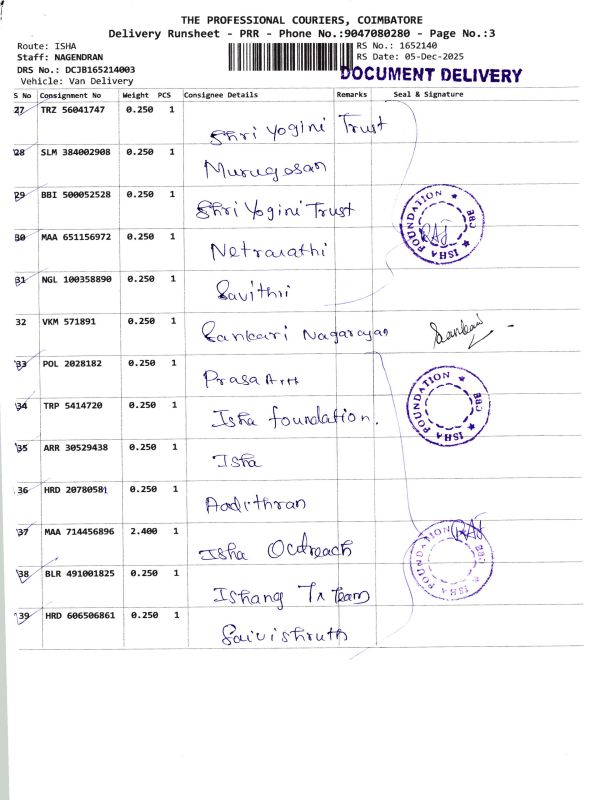 THE PROFESSIONAL COURIERS, COIMBATORE
Delivery Runsheet - PRR - Phone No.:9047080280 - Page No.:3
Route: ISHA
Staff: NAGENDRAN
DRS No.: DCJB165214003
Vehicle: Van Delivery
RS No.: 1652140
RS Date: 05-Dec-2025
DOCUMENT DELIVERY
S No Consignment No Weight PCS Consignee Details Remarks Seal & Signature
27 TRZ 56041747 0.250 1 Shri Yogini Trust
28 SLM 384002908 0.250 1 Murugosan
29 BBI 500052528 0.250 1 Shri Yogini Trust
30 MAA 651156972 0.250 1 Netravathi
31 NGL 100358890 0.250 1 Savithri
32 VKM 571891 0.250 1 Sankari Nagarayan Sankari
33 POL 2028182 0.250 1
34 TRP 5414720 0.250 1 Isha foundation.
35 ARR 30529438 0.250 1 Isha
36 HRD 20780581 0.250 1 Aadithran
37 MAA 714456896 2.400 1 Isha Ocdreach
38 BLR 491001825 0.250 1 Ishang Tr team
39 HRD 606506861 0.250 1 Saivishruth
ISHA FOUNDATION CBE
RAJ
ISHA FOUNDATION CBE
ISHA FOUNDATION CBE
RAJ